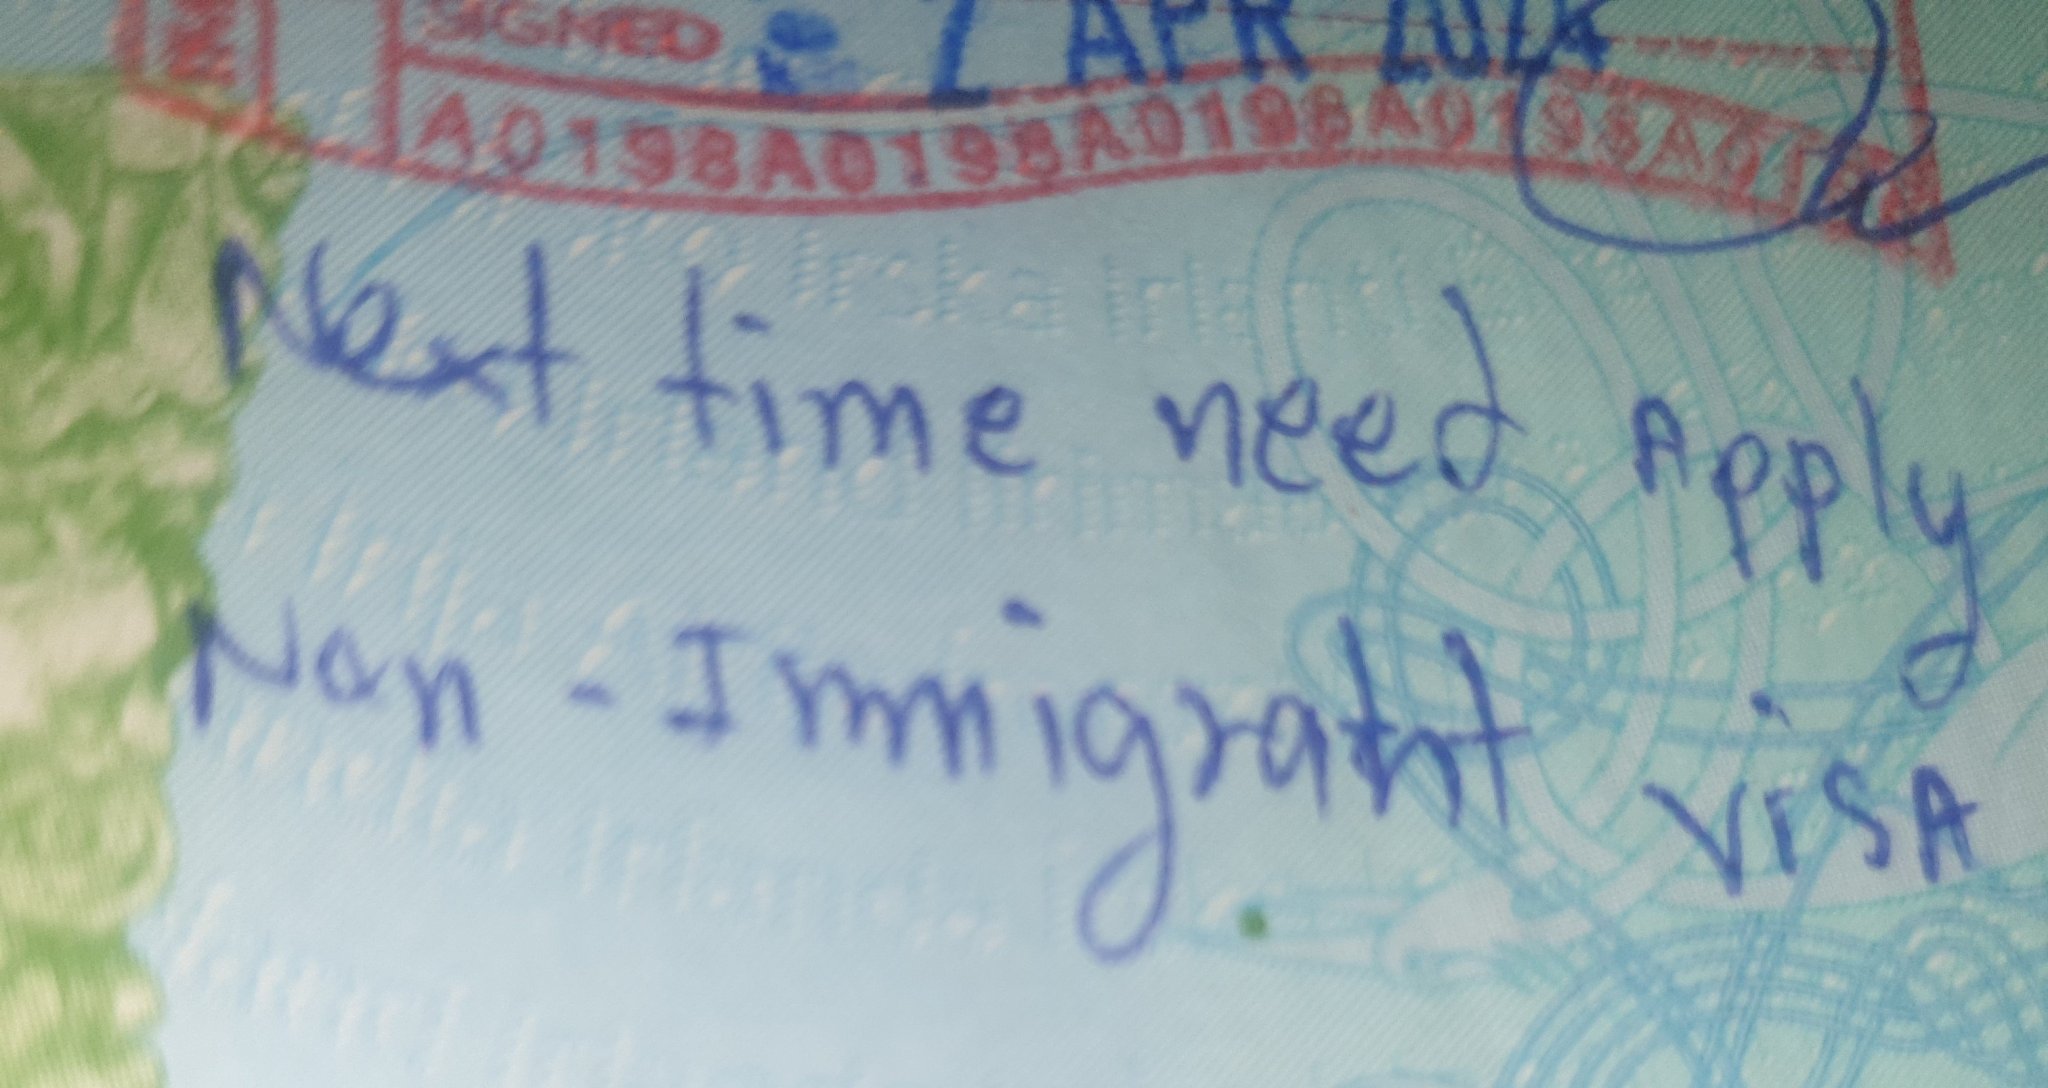 SIGNED
2 APR 2024
A0198A0198A0198A0198A0198
Next time need Apply
Non-Immigrant visa